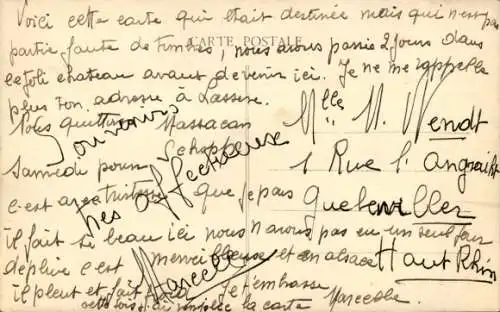 Voici cette carte qui était destinée mais qui n'est pas
partie faute de timbres, nous avons passé 2 jours dans
CARTE POSTALE
ce joli chateau avant de venir ici. Je ne me rappelle
plus ton adresse à Lassere.
Nous quittons Massacan
Samedi pour
c'est avec tristesse que je pars
il fait si beau ici nous n'avons pas eu un seul jour
de pluie c'est merveilleuse et en alsace
il pleut et fait froid Je t'embrasse
cette fois-ci la carte Marcelle
Souvenirs
très affectueux
Marcelle
Mlle M. Wendt
1 Rue l'
Guebwiller
Haut Rhin